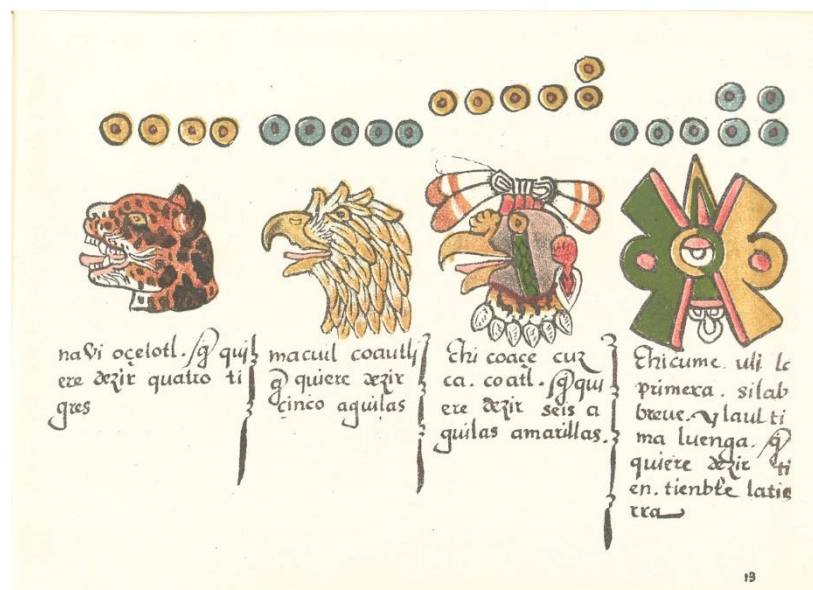 navi oçelotl. q̃ qui
ere dezir quatro ti
gres
macuil coautli
q̃ quiere dezir
cinco aguilas
chi coaçe cuz
ca. coatl. q̃ qui
ere dezir seis a
guilas amarillas.
chicume. uli lo
primera. silab
breue. y laul ti
ma luenga. q̃
quiere dezir ti
en. tienble latie
rra
13